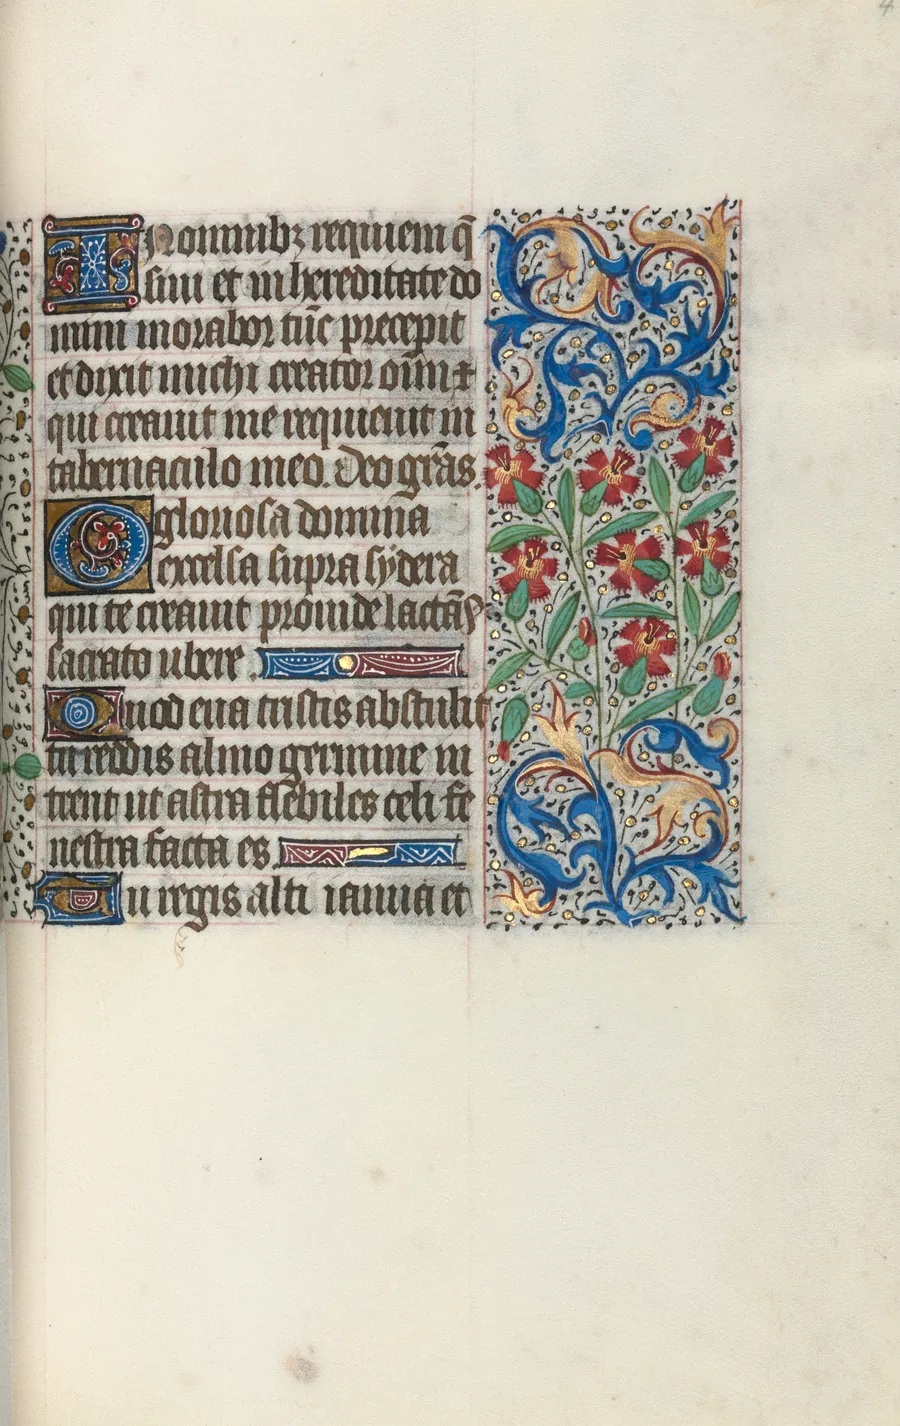 In omnibꝫ requiem q̄
siui et in hereditate do
mini morabor tūc precepit
et dixit michi creator oīm ⁊
qui creauit me requieuit in
tabernaculo meo. Deo grās
O gloriosa domina
excelsa supra sydera
qui te creauit prouide lactās
sacrato ubere
Quod eua tristis abstulit
tu reddis almo germine in
trent ut astra flebiles celi fe
nestra facta es
Tu regis alti ianua et